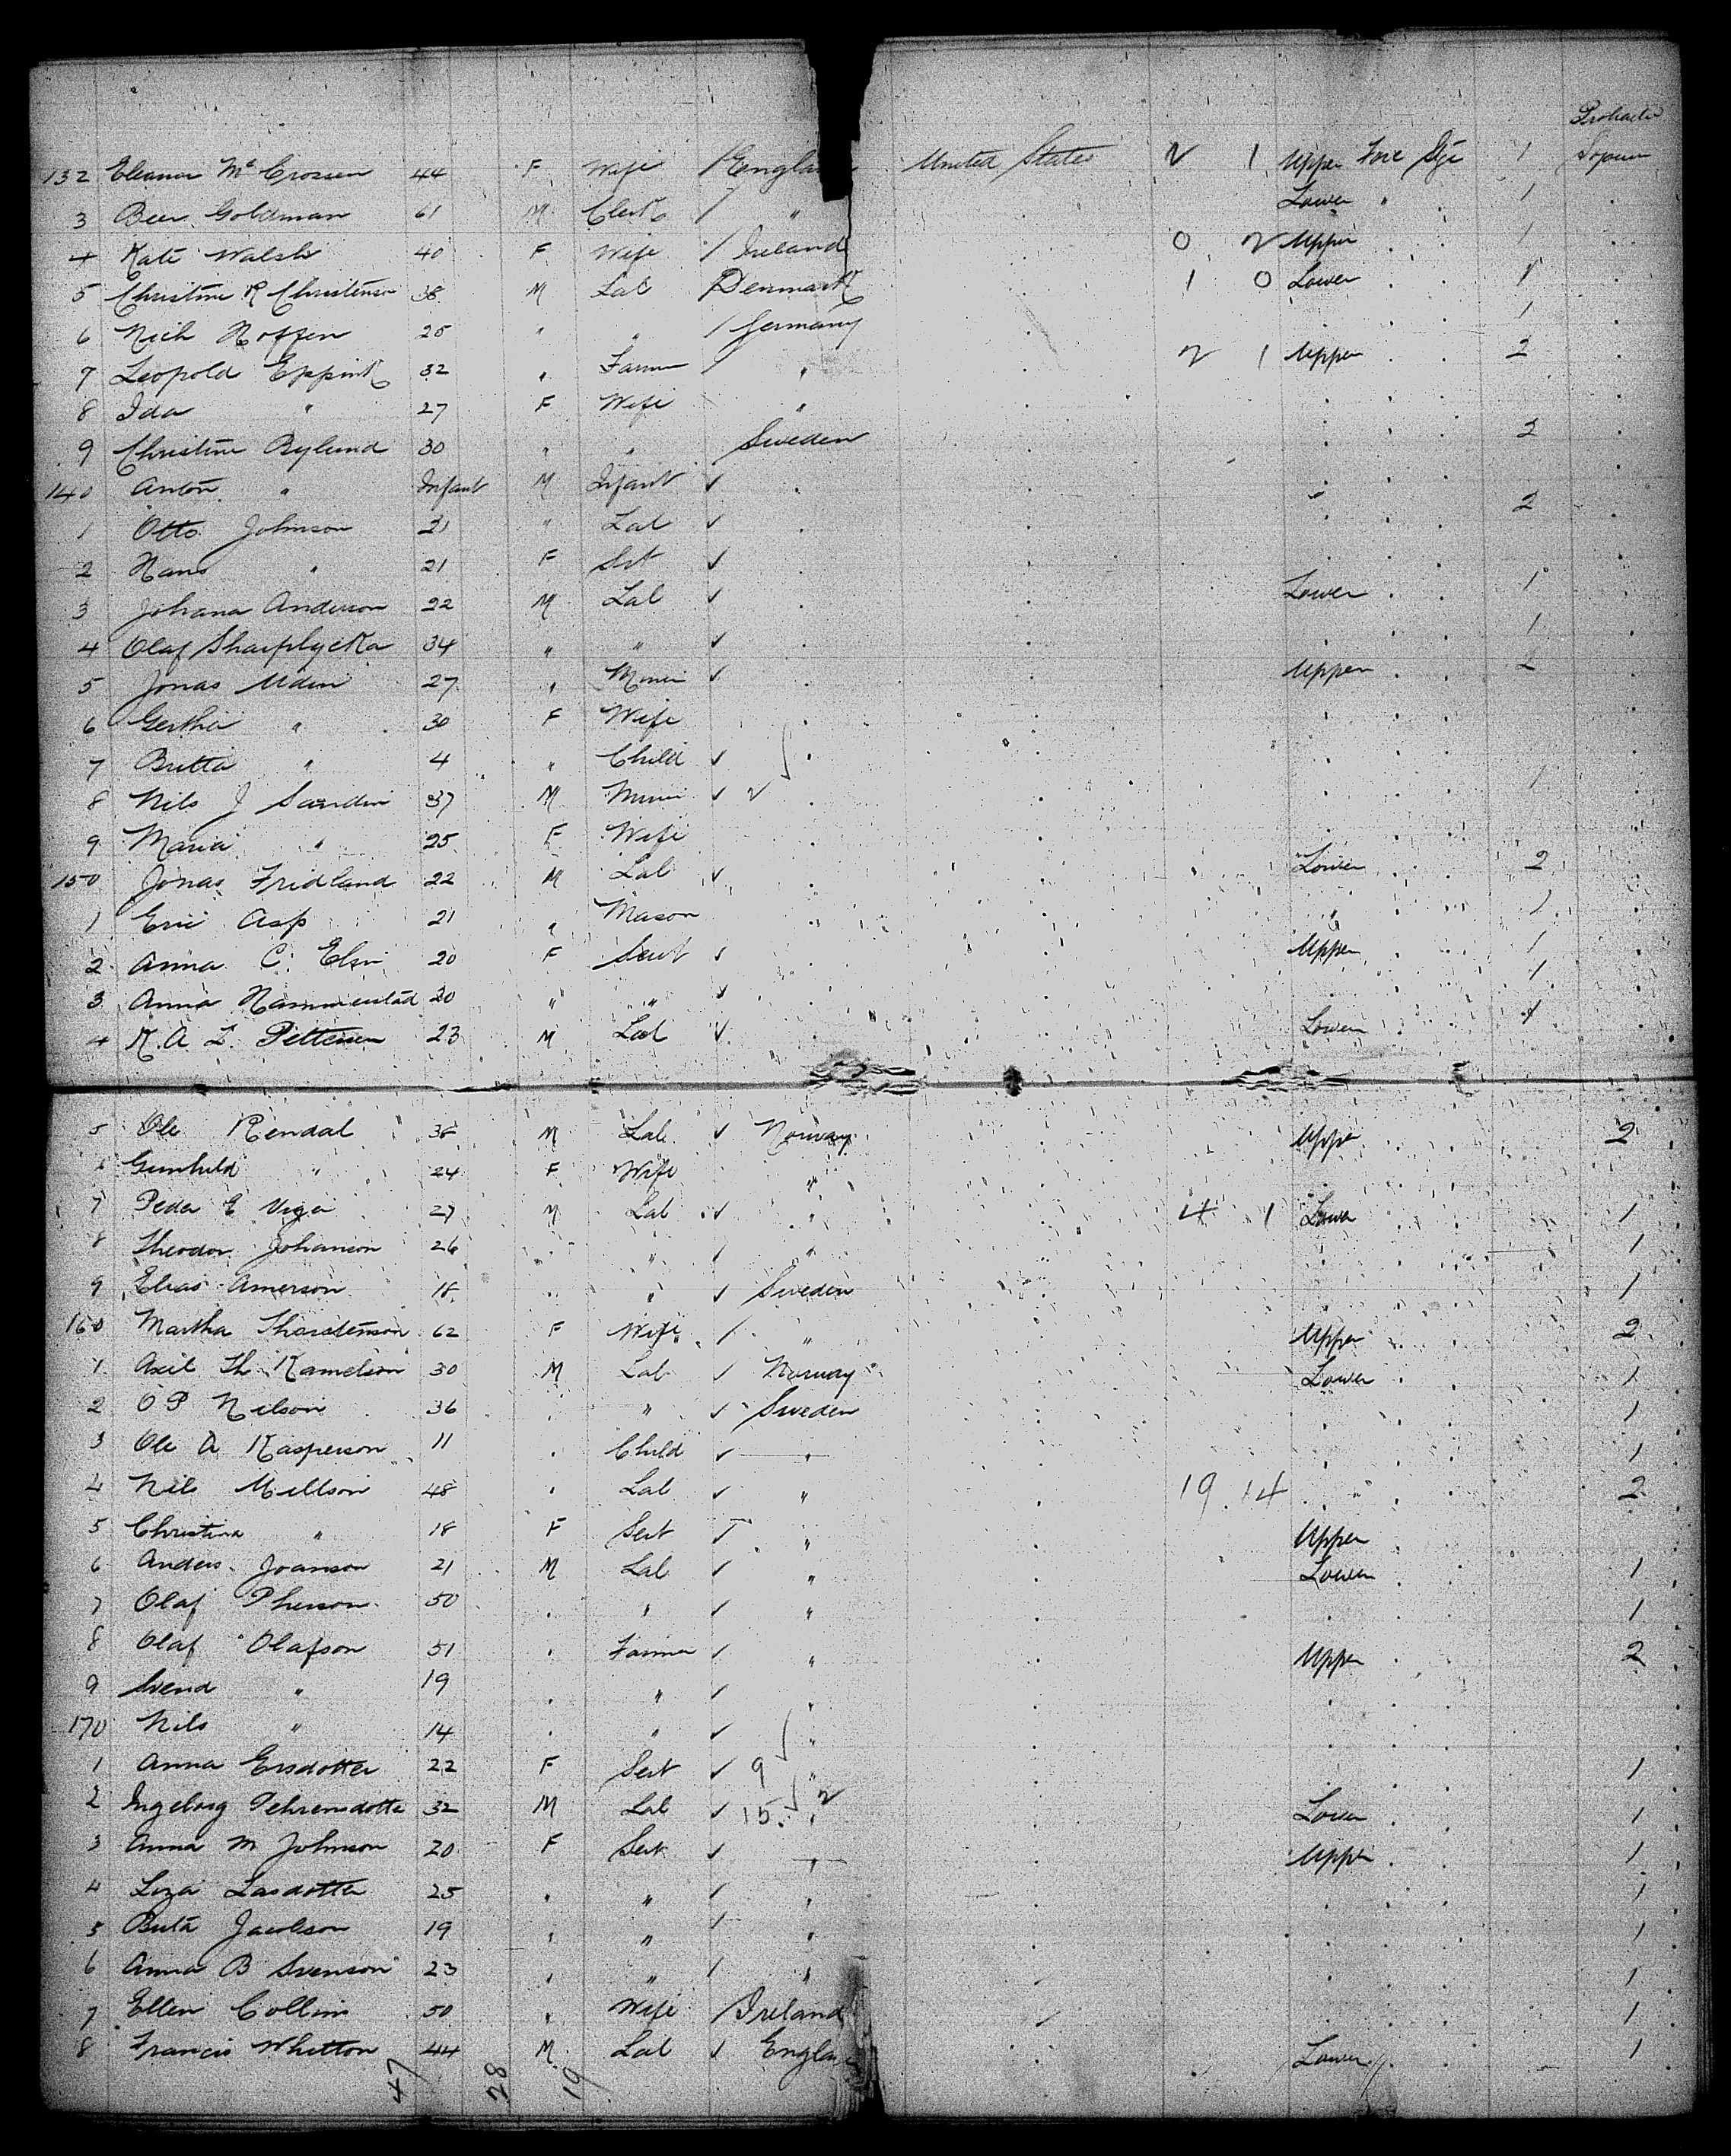 Protracted
132 Eleanor Mc Crossen 44 F Wife / England United States 2 1 Upper Fore Stge 1 Sojourn
3 Beer Goldman 61 M Clerk / " Lower " 1
4 Kate Walsh 40 F Wife / Ireland 0 2 Upper 1
5 Christine R Christensen 38 M Lab Denmark 1 0 Lower 1
6 Nich Hoffen 25 " " / Germany 1
7 Leopold 32 " Farmer / " 2 1 Upper 2
8 Ida " 27 F Wife "
9 Christine Bylund 30 " " Sweden 2
140 Anton " Infant M Infant ✓
1 Otto Johnson 21 " Lab ✓ 2
2 Hans " 21 F Svt ✓
3 Johana Anderson 22 M Lab ✓ Lower 1
4 Olaf 34 " " ✓ 1
5 Jonas Uden 27 " Miner ✓ Upper 2
6 Gertha " 30 F Wife
7 Britta " 4 " Child ✓
8 Nils J Sandin 37 M Miner ✓ 2 1
9 Maria " 25 F Wife
150 Jonas Fridland 22 M Lab ✓ Lower 2
1 Eric Asp 21 " Mason " 1
2 Anna C. 20 F Servt ✓ Upper 1
3 Anna Hammerstad 20 " " ✓ 1
4 K. A. L. Pettersen 23 M Lab ✓ Lower 1
5 Ole Rendal 38 M Lab ✓ Norway Upper 2
6 Gunhild " 24 F Wife "
7 Peder E Viga 27 M Lab ✓ " 4 1 Lower 1
8 Theodor Johanson 26 " ✓ " 1
9 Elias Amerson 18 " ✓ Sweden 1
160 Martha Thorstenson 62 F Wife / " Upper 2
1 Axil Th Kamelson 30 M Lab ✓ Norway Lower 1
2 O P Nilson 36 " ✓ Sweden 1
3 Ole A Kasperson 11 Child ✓ " 1
4 Nils Millson 48 Lab ✓ " 19 . 14 " 2
5 Christina " 18 F Svt ✓ " Upper
6 Anders Joanson 21 M Lab ✓ " Lower 1
7 Olaf Pherson 50 " ✓ " 1
8 Olaf Olafson 51 Farmer ✓ " Upper 2
9 Svend " 19 " ✓ "
170 Nils " 14 " ✓ "
1 Anna Ersdotter 22 F Svt ✓ 9 " 1
2 Ingeborg Pehrensdotter 32 M Lab ✓ 15 2 Lower 1
3 Anna M Johnson 20 F Svt ✓ " Upper 1
4 Liza Lasdotter 25 " " ✓ " 1
5 Buta Jacobson 19 " " ✓ " 1
6 Anna B Svenson 23 " " / " 1
7 Ellen Collins 50 " Wife / Ireland 1
8 Francis Whitton 44 M Lab ✓ England Lower 1
47 28 19